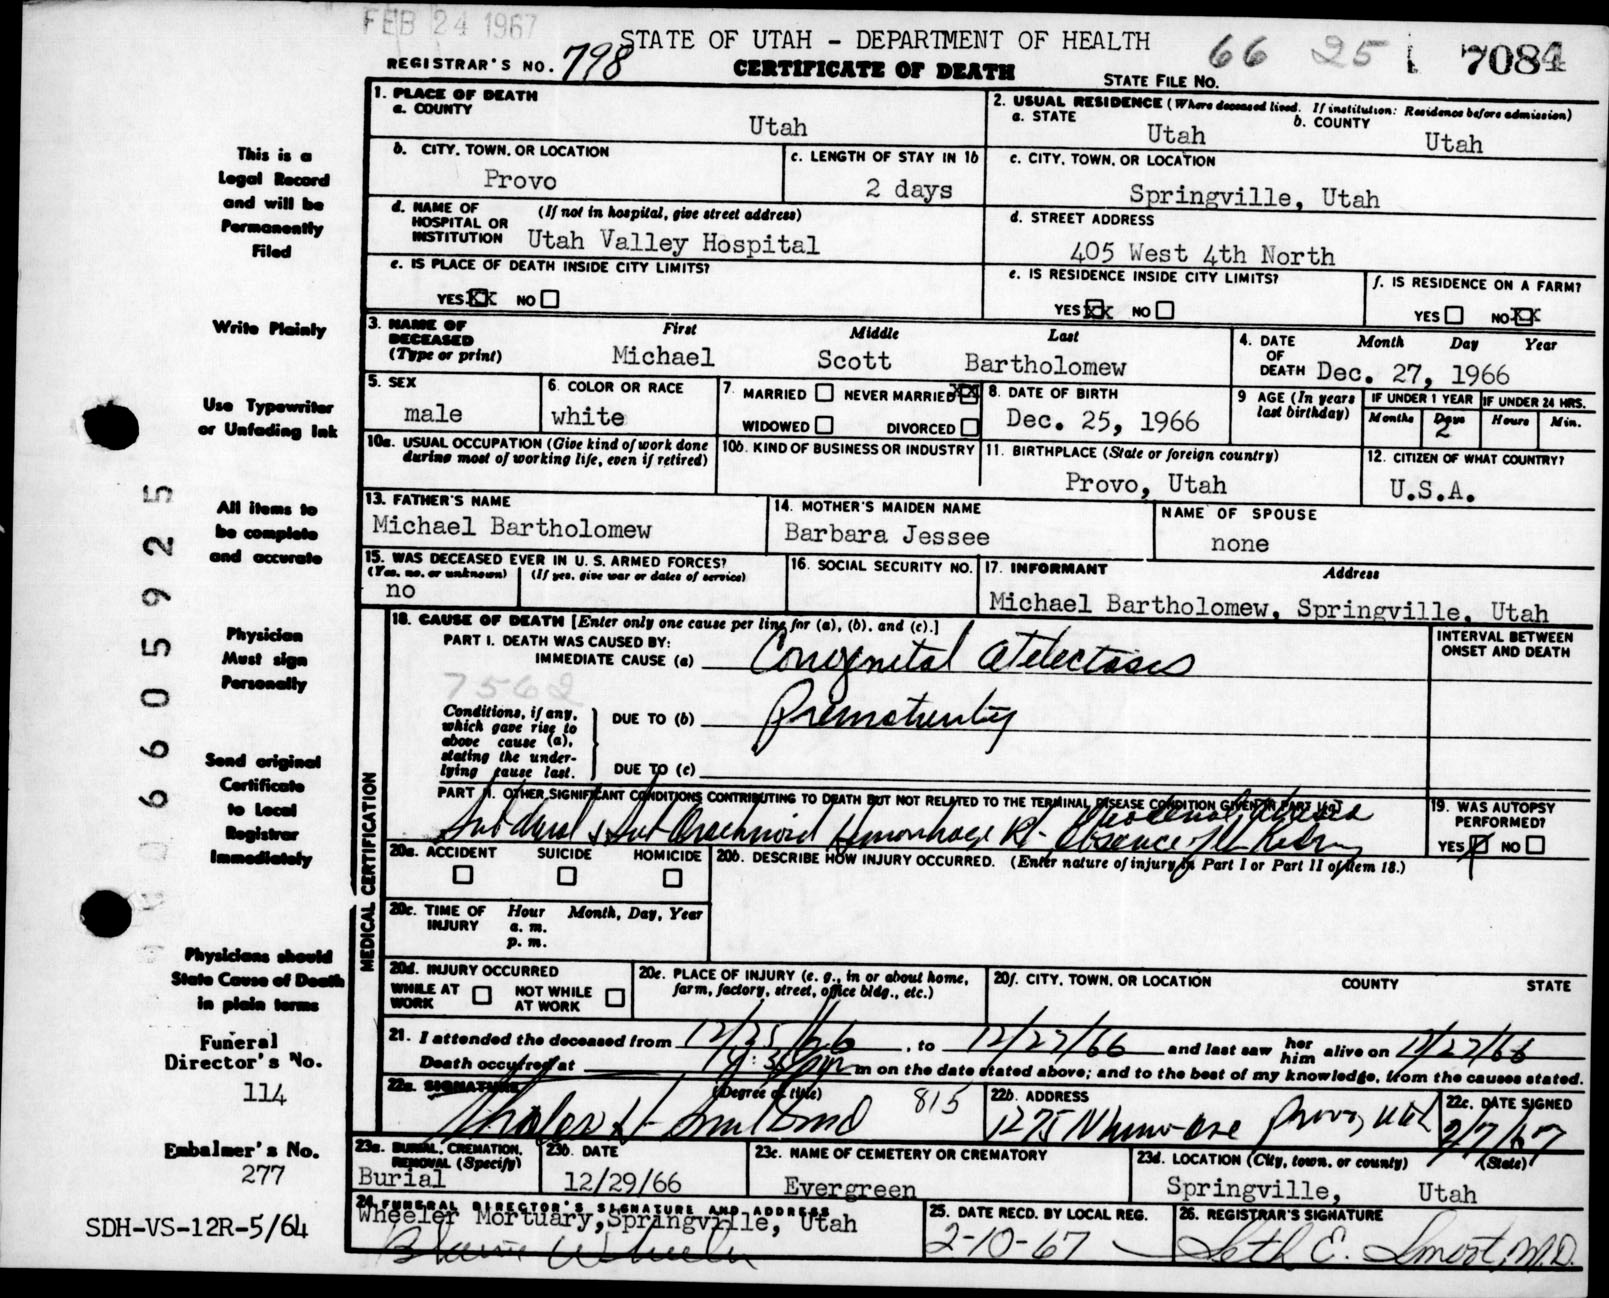 FEB 24 1967
STATE OF UTAH - DEPARTMENT OF HEALTH
66 25 1 7084
REGISTRAR'S NO. 798
CERTIFICATE OF DEATH
STATE FILE NO.
1. PLACE OF DEATH
a. COUNTY
Utah
2. USUAL RESIDENCE (Where deceased lived. If institution: Residence before admission)
a. STATE
Utah
b. COUNTY
Utah
b. CITY, TOWN, OR LOCATION
Provo
c. LENGTH OF STAY IN 1b
2 days
c. CITY, TOWN, OR LOCATION
Springville, Utah
d. NAME OF HOSPITAL OR INSTITUTION
(If not in hospital, give street address)
Utah Valley Hospital
d. STREET ADDRESS
405 West 4th North
e. IS PLACE OF DEATH INSIDE CITY LIMITS?
YES XX NO
e. IS RESIDENCE INSIDE CITY LIMITS?
YES XX NO
f. IS RESIDENCE ON A FARM?
YES NO XX
3. NAME OF DECEASED (Type or print)
First Middle Last
Michael Scott Bartholomew
4. DATE OF DEATH
Month Day Year
Dec. 27, 1966
5. SEX
male
6. COLOR OR RACE
white
7. MARRIED NEVER MARRIED XX
WIDOWED DIVORCED
8. DATE OF BIRTH
Dec. 25, 1966
9 AGE (In years last birthday)
IF UNDER 1 YEAR IF UNDER 24 HRS.
Months Days Hours Min.
2
10a. USUAL OCCUPATION (Give kind of work done during most of working life, even if retired)
10b. KIND OF BUSINESS OR INDUSTRY
11. BIRTHPLACE (State or foreign country)
Provo, Utah
12. CITIZEN OF WHAT COUNTRY?
U.S.A.
13. FATHER'S NAME
Michael Bartholomew
14. MOTHER'S MAIDEN NAME
Barbara Jessee
NAME OF SPOUSE
none
15. WAS DECEASED EVER IN U. S. ARMED FORCES?
(Yes, no, or unknown) (If yes, give war or dates of service)
no
16. SOCIAL SECURITY NO.
17. INFORMANT Address
Michael Bartholomew, Springville, Utah
MEDICAL CERTIFICATION
18. CAUSE OF DEATH [Enter only one cause per line for (a), (b), and (c).]
PART I. DEATH WAS CAUSED BY:
IMMEDIATE CAUSE (a) Congenital Atelectasis
INTERVAL BETWEEN ONSET AND DEATH
7562
Conditions, if any, which gave rise to above cause (a), stating the underlying cause last.
DUE TO (b) Prematurity
DUE TO (c)
PART II. OTHER SIGNIFICANT CONDITIONS CONTRIBUTING TO DEATH BUT NOT RELATED TO THE TERMINAL DISEASE CONDITION GIVEN IN PART I(a)
Subdural & Sub Arachnoid Hemorrhage Rt- Absence of Kidney
19. WAS AUTOPSY PERFORMED?
YES X NO
20a. ACCIDENT SUICIDE HOMICIDE
20b. DESCRIBE HOW INJURY OCCURRED. (Enter nature of injury in Part I or Part II of item 18.)
20c. TIME OF INJURY
Hour Month, Day, Year
a. m.
p. m.
20d. INJURY OCCURRED
WHILE AT WORK NOT WHILE AT WORK
20e. PLACE OF INJURY (e. g., in or about home, farm, factory, street, office bldg., etc.)
20f. CITY, TOWN, OR LOCATION COUNTY STATE
21. I attended the deceased from 12/25/66, to 12/27/66 and last saw her him alive on 12/27/66
Death occurred at m on the date stated above; and to the best of my knowledge, from the causes stated.
22a. SIGNATURE (Degree or title)
815
22b. ADDRESS
1275 N Provo, Utah
22c. DATE SIGNED
2/7/67
23a. BURIAL, CREMATION, REMOVAL (Specify)
Burial
23b. DATE
12/29/66
23c. NAME OF CEMETERY OR CREMATORY
Evergreen
23d. LOCATION (City, town, or county) (State)
Springville, Utah
24. FUNERAL DIRECTOR'S SIGNATURE AND ADDRESS
Wheeler Mortuary, Springville, Utah
Wheeler
25. DATE RECD. BY LOCAL REG.
2-10-67
26. REGISTRAR'S SIGNATURE
Seth E. Smoot, M.D.
This is a
Legal Record
and will be
Permanently
Filed
Write Plainly
Use Typewriter
or Unfading Ink
All items to
be complete
and accurate
Physician
Must sign
Personally
Send original
Certificate
to Local
Registrar
Immediately
Physicians should
State Cause of Death
in plain terms
Funeral
Director's No.
114
Embalmer's No.
277
SDH-VS-12R-5/64
6605925